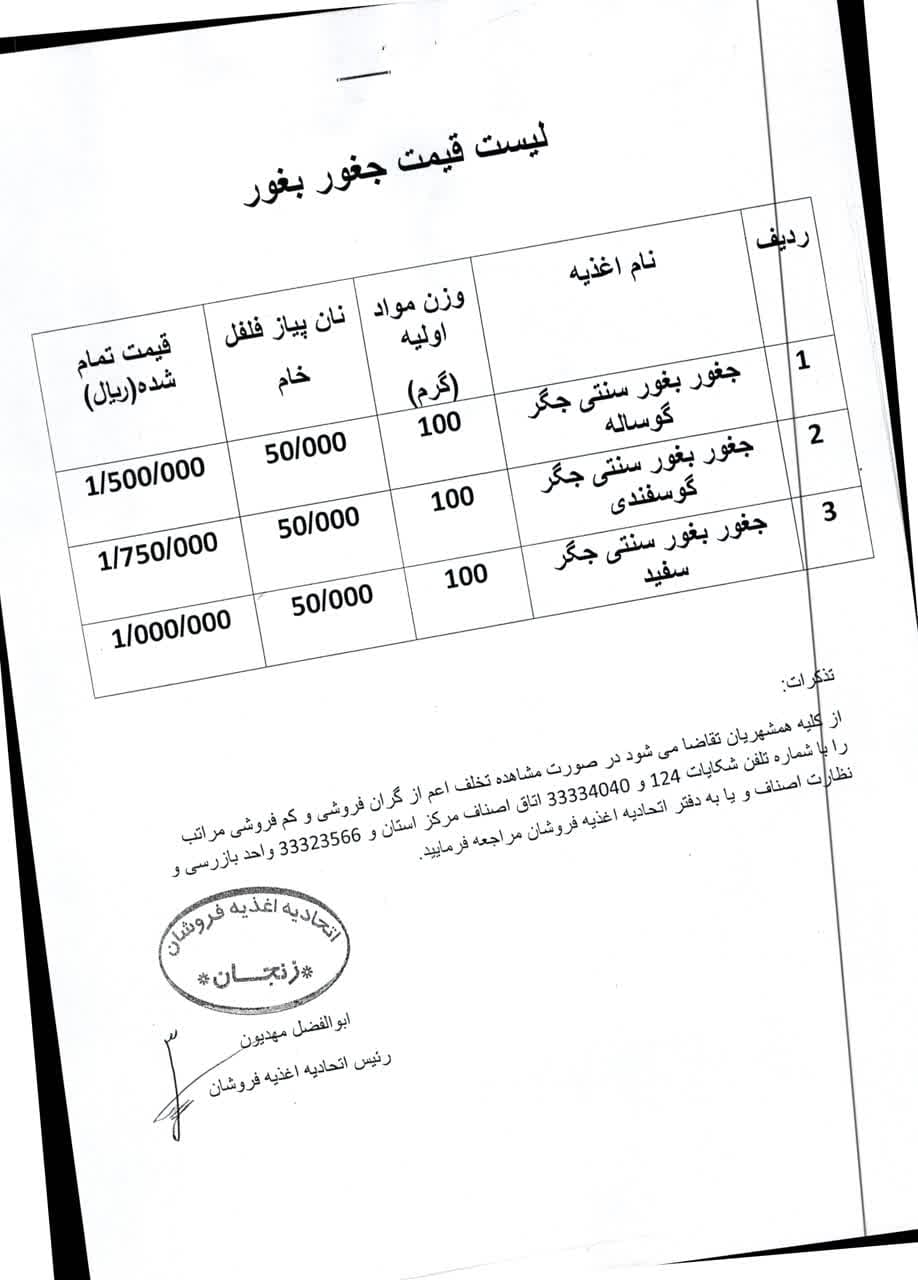 لیست قیمت جغور بغور
ردیف	نام اغذیه	وزن مواد اولیه (گرم)	نان پیاز فلفل خام	قیمت تمام شده(ریال)
1	جغور بغور سنتی جگر گوساله	100	50/000	1/500/000
2	جغور بغور سنتی جگر گوسفندی	100	50/000	1/750/000
3	جغور بغور سنتی جگر سفید	100	50/000	1/000/000
تذکرات:
از کلیه همشهریان تقاضا می شود در صورت مشاهده تخلف اعم از گران فروشی و کم فروشی مراتب
را با شماره تلفن شکایات 124 و 33334040 اتاق اصناف مرکز استان و 33323566 واحد بازرسی و
نظارت اصناف و یا به دفتر اتحادیه اغذیه فروشان مراجعه فرمایید.
اتحادیه اغذیه فروشان
*زنجـــان*
ابوالفضل مهدیون
رئیس اتحادیه اغذیه فروشان